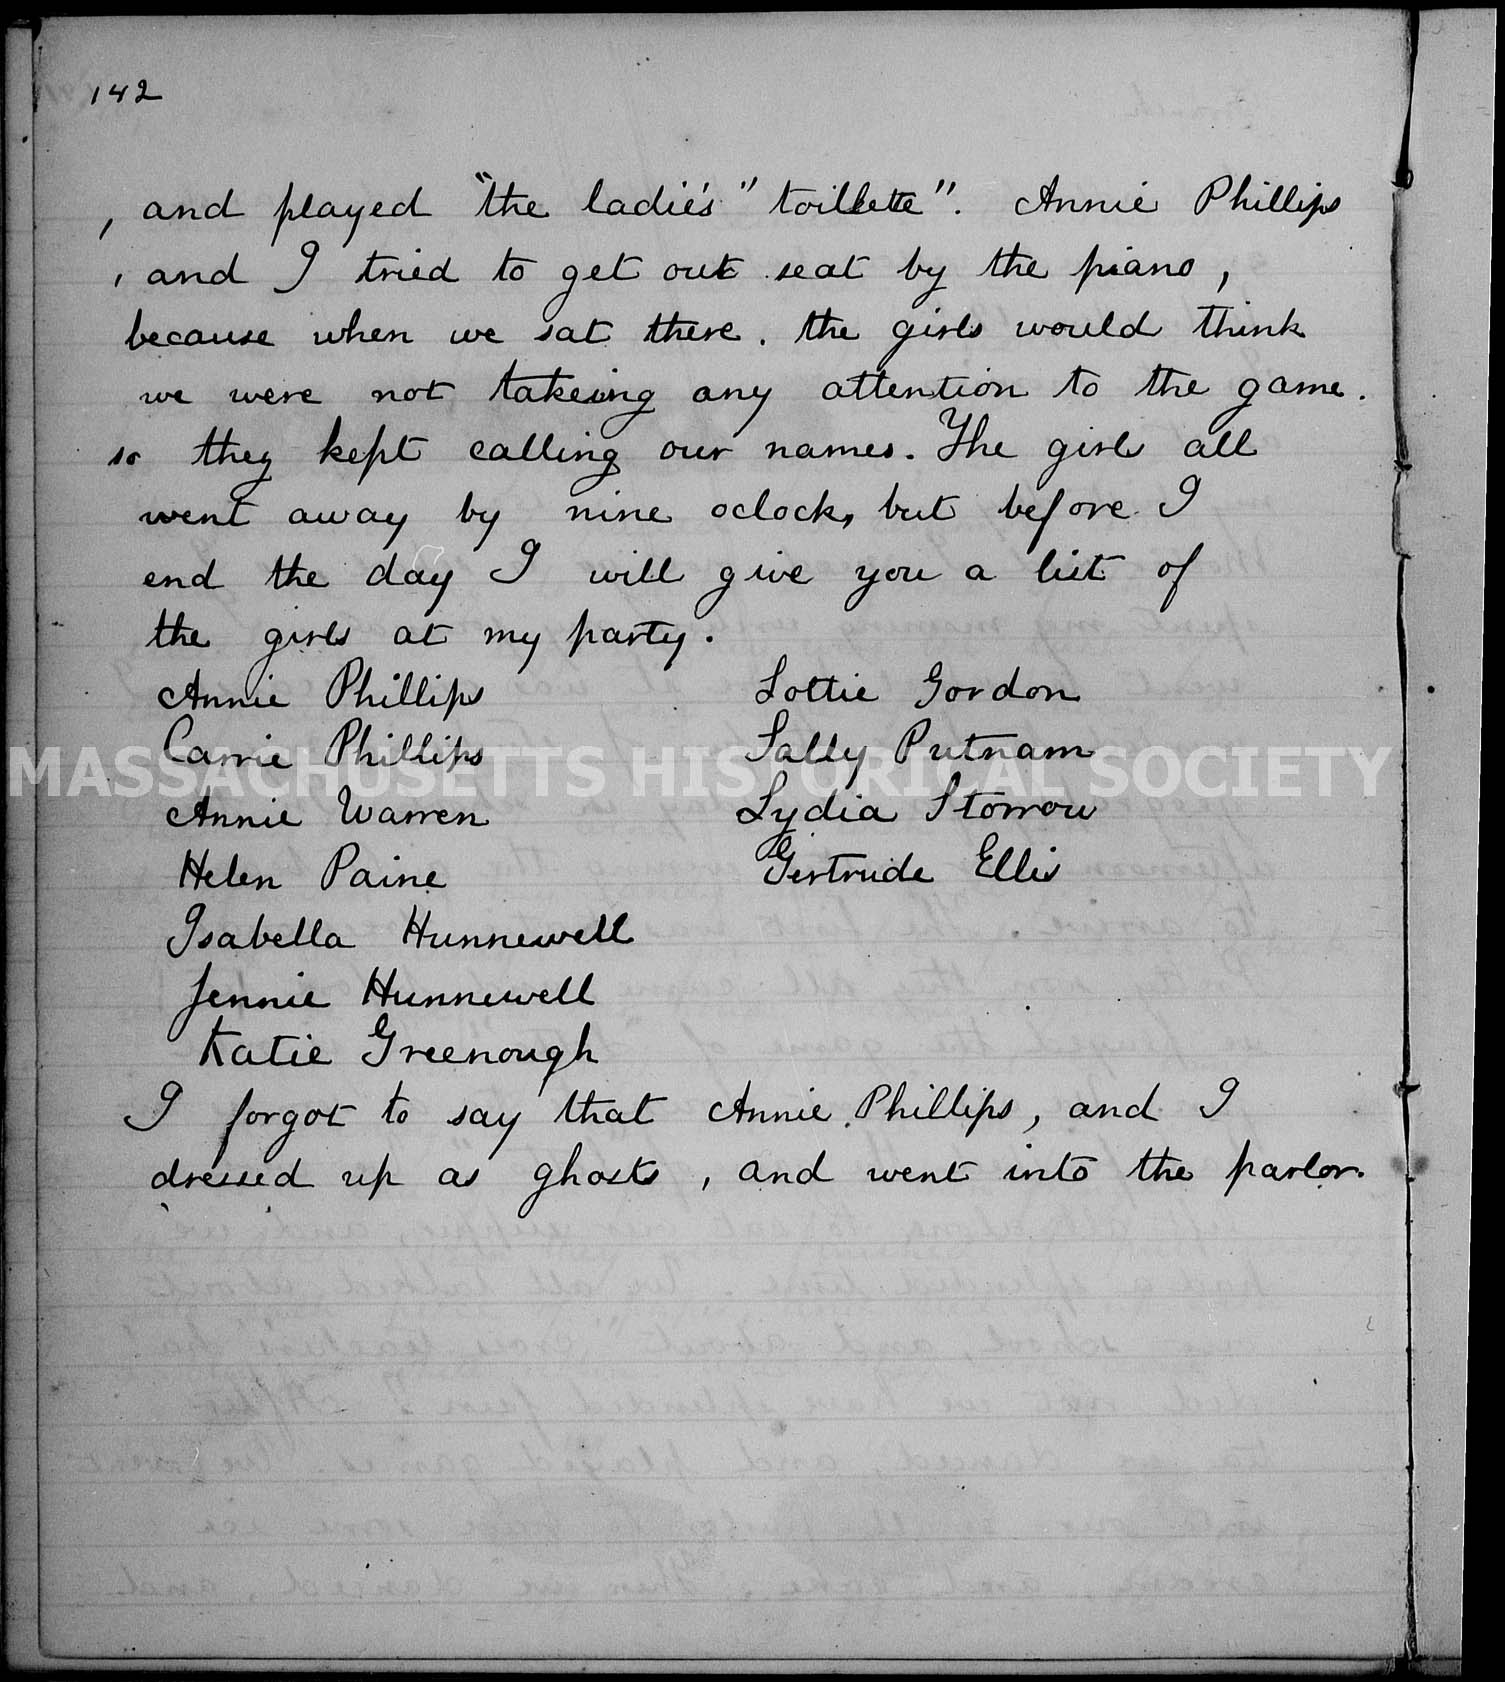 142
, and played "the ladie's" toillette". Annie Phillips
, and I tried to get out seat by the piano,
because when we sat there. the girls would think
we were not takeing any attention to the game.
so they kept calling our names. The girls all
went away by nine oclock, but before I
end the day I will give you a list of
the girls at my party.
Annie Phillips Lottie Gordon
Carrie Phillips Sally Putnam
MASSACHUSETTS HISTORICAL SOCIETY
Annie Warren Lydia Storrow
Helen Paine Gertrude Ellis
Isabella Hunnewell
Jennie Hunnewell
Katie Greenough
I forgot to say that Annie Phillips, and I
dressed up as ghosts, and went into the parlor.